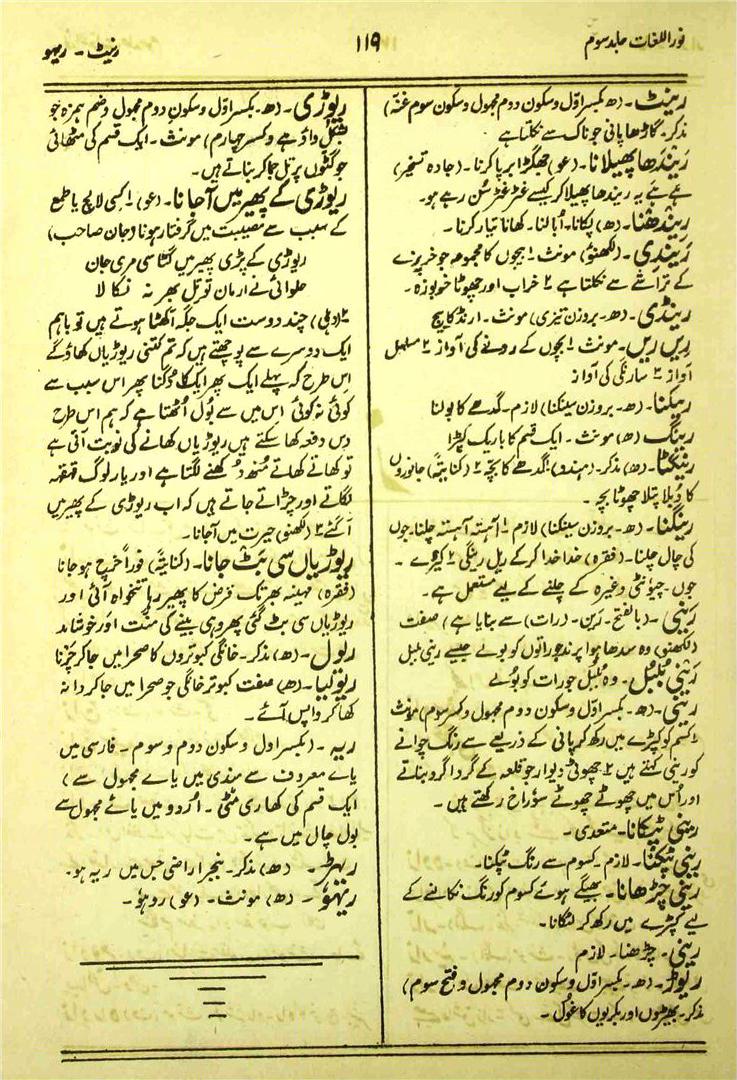 نوراللغات جلد سوم
۱۱۹
رنیٹ ۔ ریہو
رینٹ۔ (ھ۔ بکسر اوّل و سکون دوم مجہول و سکون سوم غنہ)
مذکر۔ گاڑھا پانی جو ناک سے نکلتا ہے
رَیندھا پھیلانا۔ (عو) جھگڑا برپا کرنا۔ (جادہ تسخیر)
ہے ہے یہ ریندھا پھیلا کر کیسے غٹر غٹر سُن رہے ہو۔
رِیندھنا۔ (ھ) پکانا۔ اُبالنا۔ کھانا تیار کرنا۔
رَیندی۔ (لکھنؤ) مونث ۱ بیجوں کا مجموعہ جو خرپزے
کے تراشنے سے نکلتا ہے ۲ خراب اور چھوٹا خرپوزہ۔
رینڈی۔ (ھ۔ بروزن تیزی) مونث۔ ارنڈ کا بیج
رِیں رِیں۔ مونث ۱ بچوں کے رونے کی آواز ۲ مسلسل
آواز ۳ سارنگی کی آواز
رینکنا۔ (ھ۔ بروزن سینکنا) لازم۔ گدھے کا بولنا
رینگ (ھ) مونث۔ ایک قسم کا باریک کپڑا
رینگٹا۔ (ھ) مذکر۔ (ہندو) ۱ گدھے کا بچہ ۲ (کنایتہً) جانوروں
کا دُبلا پتلا چھوٹا بچہ۔
رینگنا۔ (ھ۔ بروزن سینکنا) لازم ۱ آہستہ آہستہ چلنا۔ جوں
کی چال چلنا۔ (فقرہ) خدا خدا کر کے ریل رینگی ۲ کیڑے۔
جوں۔ چیونٹی وغیرہ کے چلنے کے لیے مستعمل ہے۔
رَینی۔ (بالفتح۔ رین۔ (رات) سے بنایا ہے) صفت
(لکھنؤ) وہ سدھا ہوا پرند جو راتوں کو بولے جیسے رینی بلبل
رَینی بُلبُل۔ وہ بُلبُل جو رات کو بُولے
رینی۔ (ھ۔ بکسر اوّل و سکون دوم مجہول و کسر سوم) مونث
۱ کسم کو کپڑے میں رکھ کر پانی کے ذریعے سے رنگ چوانے
کو رینی کہتے ہیں ۲ چھوٹی دیوار جو قلعہ کے گرداگرد بناتے
اور اُس میں چھوٹے چھوٹے سوراخ رکھتے ہیں۔
رینی ٹپکانا۔ متعدی۔
رینی ٹپکنا۔ لازم۔ کسوم سے رنگ ٹپکنا۔
رینی چڑھانا۔ بھیگے ہوئے کسوم کو رنگ نکالنے کے
لیے کپڑے میں رکھ کر لٹکانا۔
رینی۔ چڑھنا۔ لازم
ریوڑ۔ (ھ۔ بکسر اوّل و سکون دوم مجہول و فتح سوم)
مذکر۔ بھیڑوں اور بکریوں کا غول۔
ریوڑی۔ (ھ۔ بکسر اوّل و سکون دوم مجہول و ضم ہمزہ جو
بشکل واؤ ہے و کسر چہارم) مونث۔ ایک قسم کی مٹھائی
جو گٹوں پر تل جما کر بناتے ہیں۔
ریوڑی کے پھیر میں آجانا۔ (عو) ۱ کسی لالچ یا طمع
کے سبب سے مصیبت میں گرفتار ہونا (جان صاحب)
ریوڑی کے پڑی پھیر میں گٹا سی مری جان
حلوائی نے ارمان تو تل بھر نہ نکالا
۲ (دہلی) چند دوست ایک جگہ اکٹھا ہوتے ہیں تو باہم
ایک دوسرے سے پوچھتے ہیں کہ تم کتنی ریوڑیاں کھاؤگے
اِس طرح کہ پہلے ایک پھر ایک کا دُگنا پھر اس سبب سے
کوئی نہ کوئی اس میں سے بُول اُٹھتا ہے کہ ہم اس طرح
دس دفعہ کھا سکتے ہیں ریوڑیاں کھانے کی نوبت آتی ہے
تو کھاتے کھاتے منھ دُکھنے لگتا ہے اور یار لوگ قہقہہ
لگاتے اور چڑاتے جاتے ہیں کہ اب ریوڑی کے پھیر میں
آگئے ۳ (لکھنؤ) حیرت میں آجانا۔
ریوڑیاں سی بَٹ جانا۔ (کنایتہً) فوراً خرچ ہوجانا
(فقرہ) مہینہ بھر تک قرض کا پھیر رہا تنخواہ آئی اور
ریوڑیاں سی بٹ گئی پھر وہی بنیے کی منّت اور خوشامد
ریول۔ (ھ) مذکر۔ خانگی کبوتروں کا صحرا میں جا کر چُرنا
ریولیا۔ (ھ) صفت کبوتر خانگی جو صحرا میں جا کر دانہ
کھا کر واپس آئے۔
ریہ۔ (بکسر اول و سکون دوم و سوم۔ فارسی میں
یاے معروف سے ہندی میں یاے مجہول سے)
ایک قسم کی کھاری مٹی۔ اُردو میں یائے مجہول سے
بول چال میں ہے۔
ریہڑ۔ (ھ) مذکر۔ بنجر اراضی جس میں ریہ ہو۔
ریہُو۔ (ھ) مونث۔ (عو) روہو۔